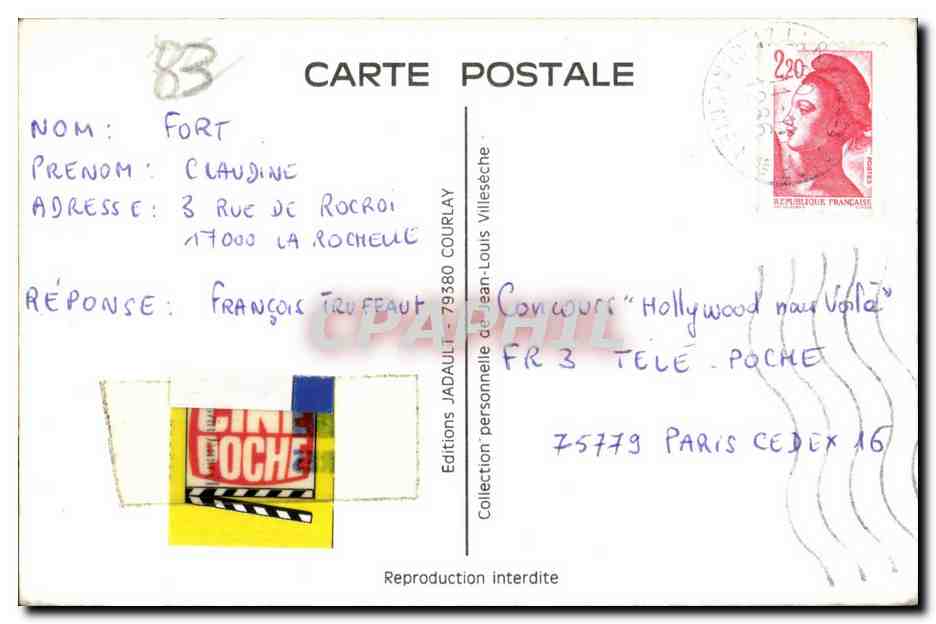 83
CARTE POSTALE
2,20
POSTES
RÉPUBLIQUE FRANÇAISE
NOM : FORT
PRENOM : CLAUDINE
ADRESSE : 3 RUE DE ROCROI
17000 LA ROCHELLE
RÉPONSE : FRANÇOIS TRUFFAUT
CINE
POCHE
Editions JADAULT - 79380 COURLAY
Collection personnelle de Jean-Louis Villesèche
CPAPHIL
Concours "Hollywood nous Voilà"
FR3 TÉLÉ-POCHE
75779 PARIS CEDEX 16
Reproduction interdite